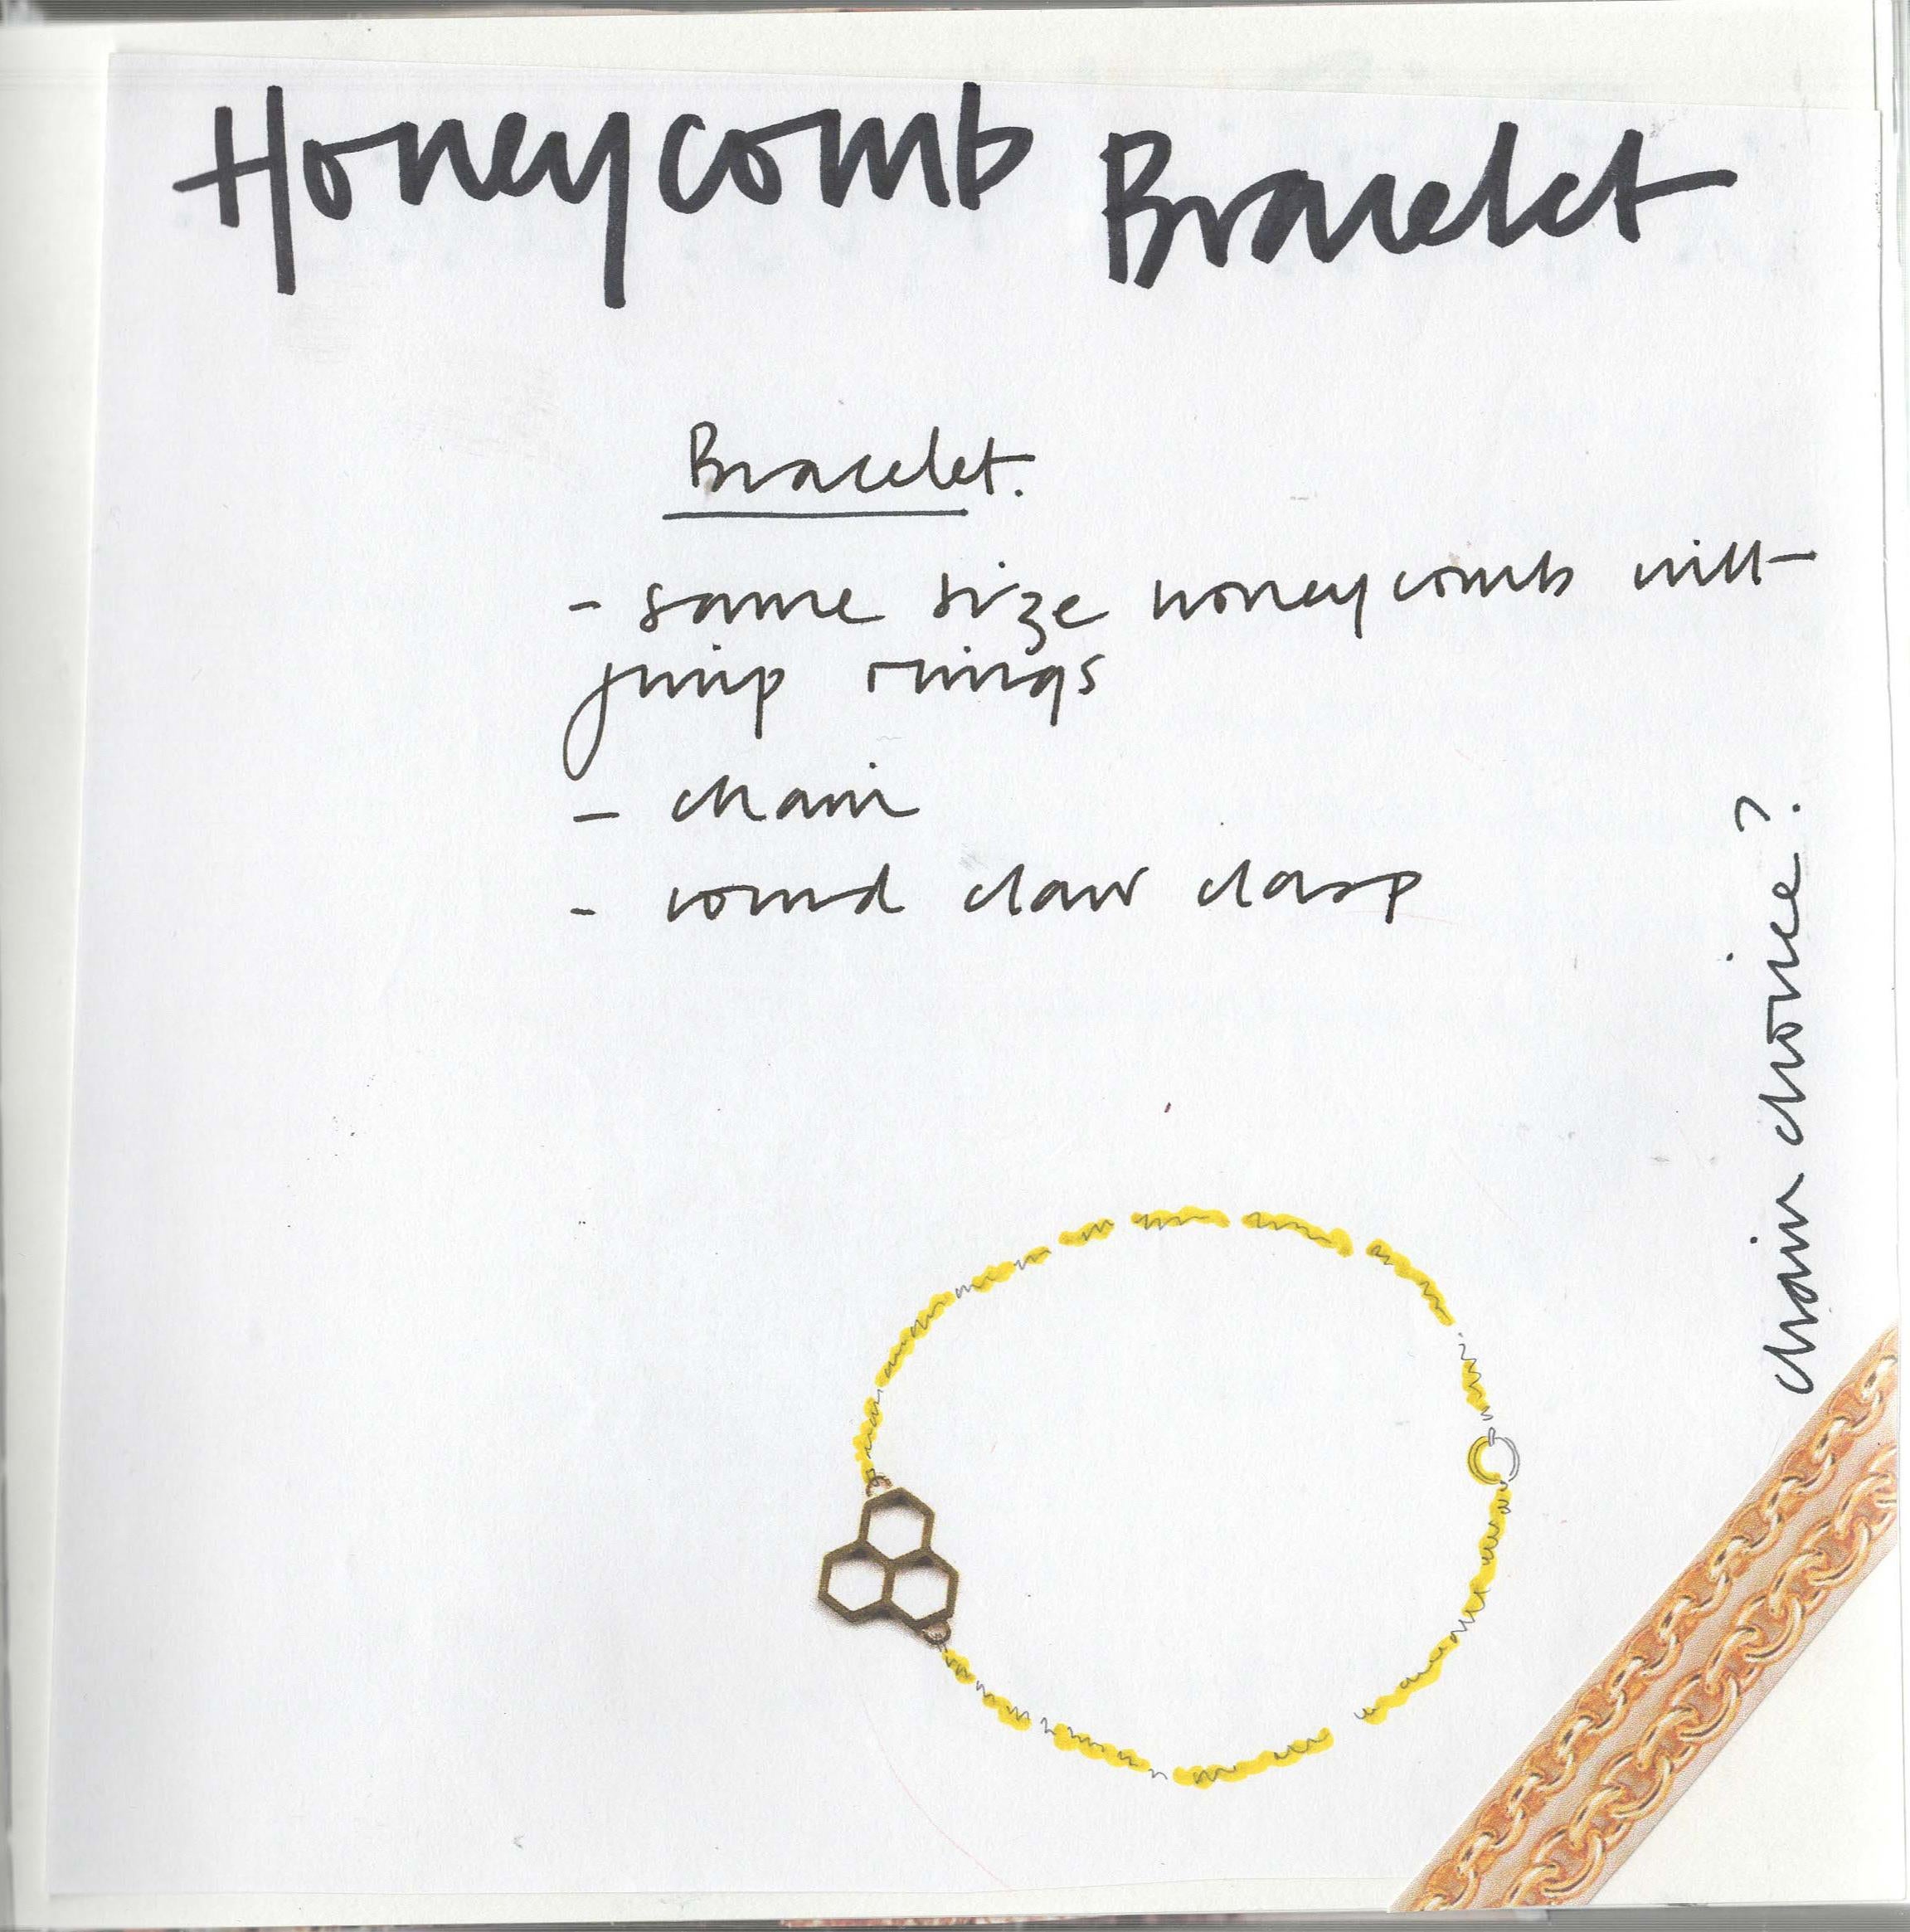 Honeycomb Bracelet
Bracelet.
- same size honeycomb with
jump rings
- chain
- round claw clasp
chain choice?